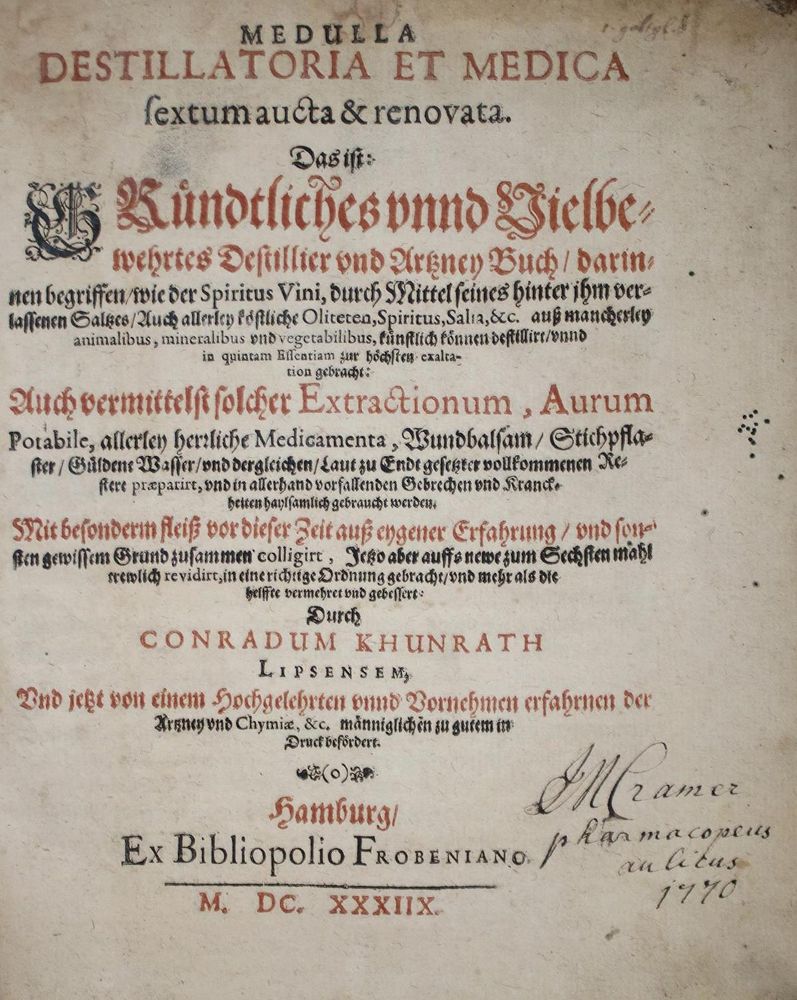 MEDULLA
DESTILLATORIA ET MEDICA
ſextum aucta & renovata.
Das iſt:
GRündtliches vnnd Vielbe-
wehrtes Deſtillier vnd Artzney Buch / darin-
nen begriffen / wie der Spiritus Vini, durch Mittel ſeines hinter jhm ver-
laſſenen Saltzes / Auch allerley köſtliche Oliteten, Spiritus, Salia, &c. auß mancherley
animalibus, mineralibus vnd vegetabilibus, künſtlich können deſtillirt / vnnd
in quintam Eſſentiam zur höchſten exalta-
tion gebracht:
Auch vermittelſt ſolcher Extractionum, Aurum
Potabile, allerley herꝛliche Medicamenta, Wundbalſam / Stichpfla-
ſter / Güldene Waſſer / vnd dergleichen / Laut zu Endt geſetzter vollkommenen Re-
ſtere præparirt, vnd in allerhand vorfallenden Gebrechen vnd Kranck-
heiten haylſamlich gebraucht werden.
Mit beſonderm fleiß vor dieſer Zeit auß eygener Erfahrung / vnd ſon-
ſten gewiſſem Grund zuſammen colligirt, Jetzo aber auffs newe zum Sechſten mahl
trewlich revidirt, in eine richtige Ordnung gebracht / vnd mehr als die
helffte vermehret vnd gebeſſert:
Durch
CONRADUM KHUNRATH
LIPSENSEM,
Vnd jetzt von einem Hochgelehrten vnnd Vornehmen erfahrnen der
Artzney vnd Chymiæ, &c. männiglichen zu gutem in
Druck befördert.
(o)
Hamburg /
Ex Bibliopolio FROBENIANO.
M. DC. XXXIIX.
JNCramer
pharmacopeus
aulicus
1770